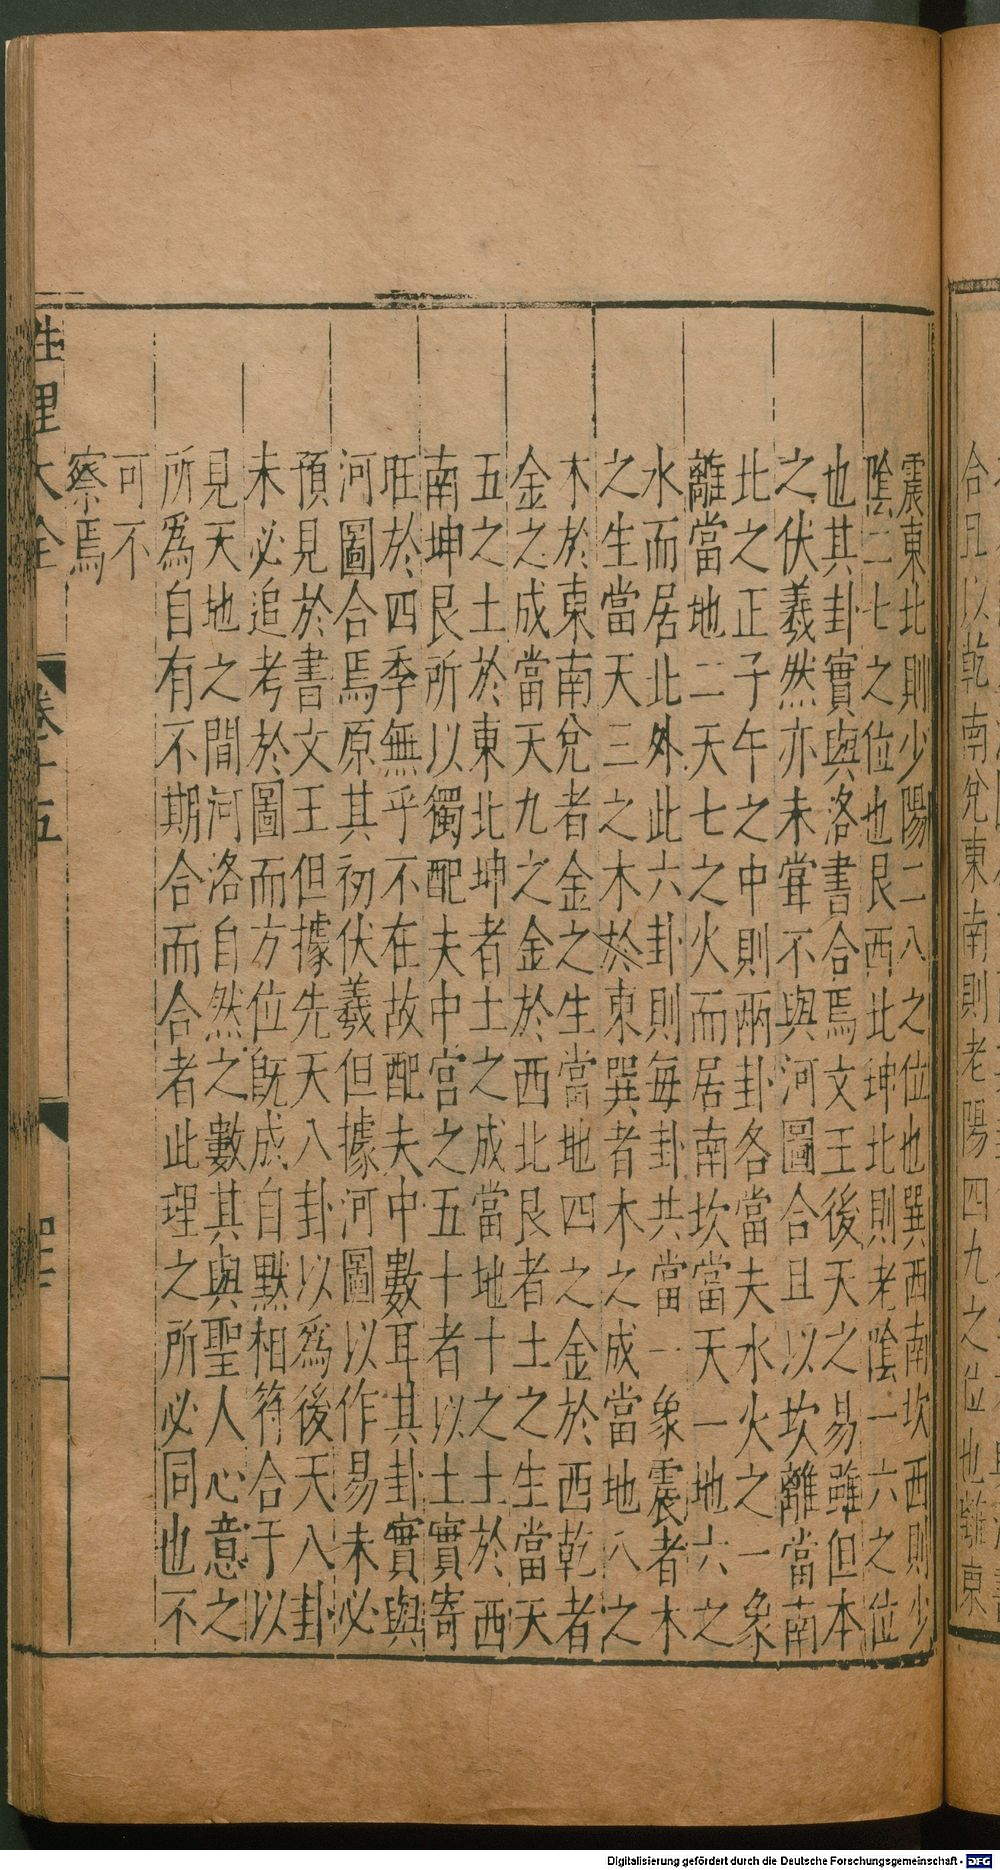 合且以乾南兌東南則老陽四九之位也離東
震東北則少陽二八之位也巽西南坎西則少
陰二七之位也艮西北坤北則老陰一六之位
也其卦實與洛書合焉文王後天之易雖但本
之伏羲然亦未甞不與河圖合且以坎離當南
北之正子午之中則兩卦各當夫水火之一象
離當地二天七之火而居南坎當天一地六之
水而居北外此六卦則每卦共當一象震者木
之生當天三之木於東巽者木之成當地八之
木於東南兌者金之生當地四之金於西乾者
金之成當天九之金於西北艮者土之生當天
五之土於東北坤者土之成當地十之土於西
南坤艮所以獨配夫中宮之五十者以土實寄
旺於四季無乎不在故配夫中數耳其卦實與
河圖合焉原其初伏羲但據河圖以作易未必
預見於書文王但據先天八卦以為後天八卦
未必追考於圖而方位旣成自默相符合于以
見天地之間河洛自然之數其與聖人心意之
所為自有不期合而合者此理之所必同也不
可不
察焉
性理大全 卷十五